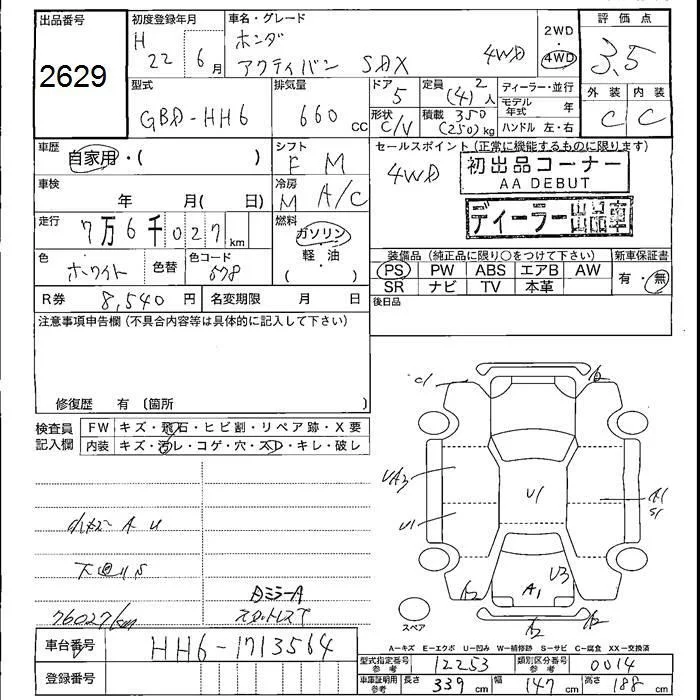 出品番号
2629
初度登録年月
H 22 6月
車名・グレード
ホンダ
アクティバン SDX 4WD
2WD
4WD
評価点
3.5
外装 内装
C C
型式
GBD-HH6
排気量
660 cc
ドア
5
形状
C/V
定員 2
(4)人
積載 350
(250)kg
ディーラー・並行
モデル年式 年
ハンドル 左・右
車歴
自家用・( )
シフト
F M
セールスポイント(正常に機能するものに限ります)
4WD
初出品コーナー
AA DEBUT
ディーラー出品車
車検
年 月( 日)
冷房
M A/C
走行
7万6千027km
燃料
ガソリン
軽・油
・
色
ホワイト
色替
色コード
578
装備品(純正品に限り○をつけて下さい)
PS PW ABS エアB AW
SR ナビ TV 本革
新車保証書
有・無
R券 8,540円
名変期限 月 日
後日品
注意事項申告欄(不具合内容等は具体的に記入して下さい)
修復歴 有 〔箇所 〕
検査員記入欄
FW キズ・飛石・ヒビ割・リペア跡・X要
内装 キズ・汚レ・コゲ・穴・スレ・キレ・破レ
76027km
DミラーA
スタットレス
UA3
U1
U1
A1
S1
A2
A1
U3
A2
A2
スペア
A−キズ E−エクボ U−凹み W−補修跡 S−サビ C−腐食 XX−交換済
車台番号 HH6-1713564
登録番号
型式指定番号参考 12253
類別区分番号参考 0014
車庫証明用参考 長さ 339cm 幅 147cm 高さ 188cm